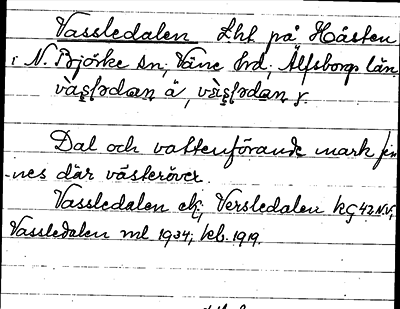 Vassledalen Lht på Håsten
i N. Björke sn; Väne hrd; Älfsborgs län.
Dal och vattenförande mark fin-
-nes där västeröver.
Vassledalen ek; Versledalen kg 42 N.V;
Vassledalen ml 1934; kb. 1919.